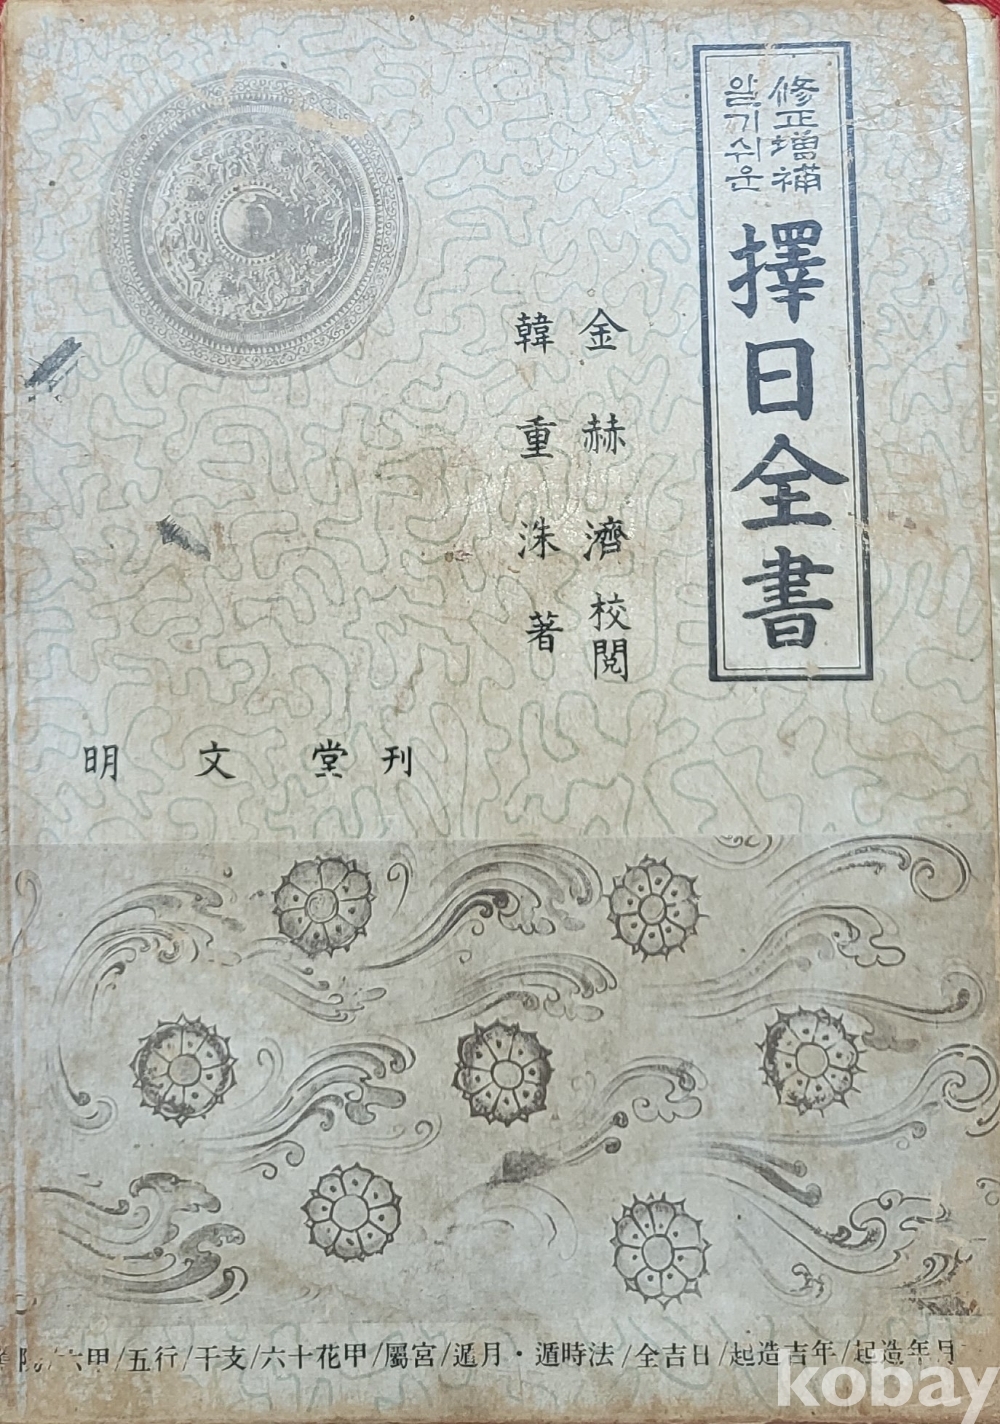 修正增補
알기쉬운
擇日全書
金赫濟 校閱
韓重洙 著
明文堂 刊
六甲/五行/干支/六十花甲/屬宮/遁月·遁時法/全吉日/起造吉年/起造年月
kobay